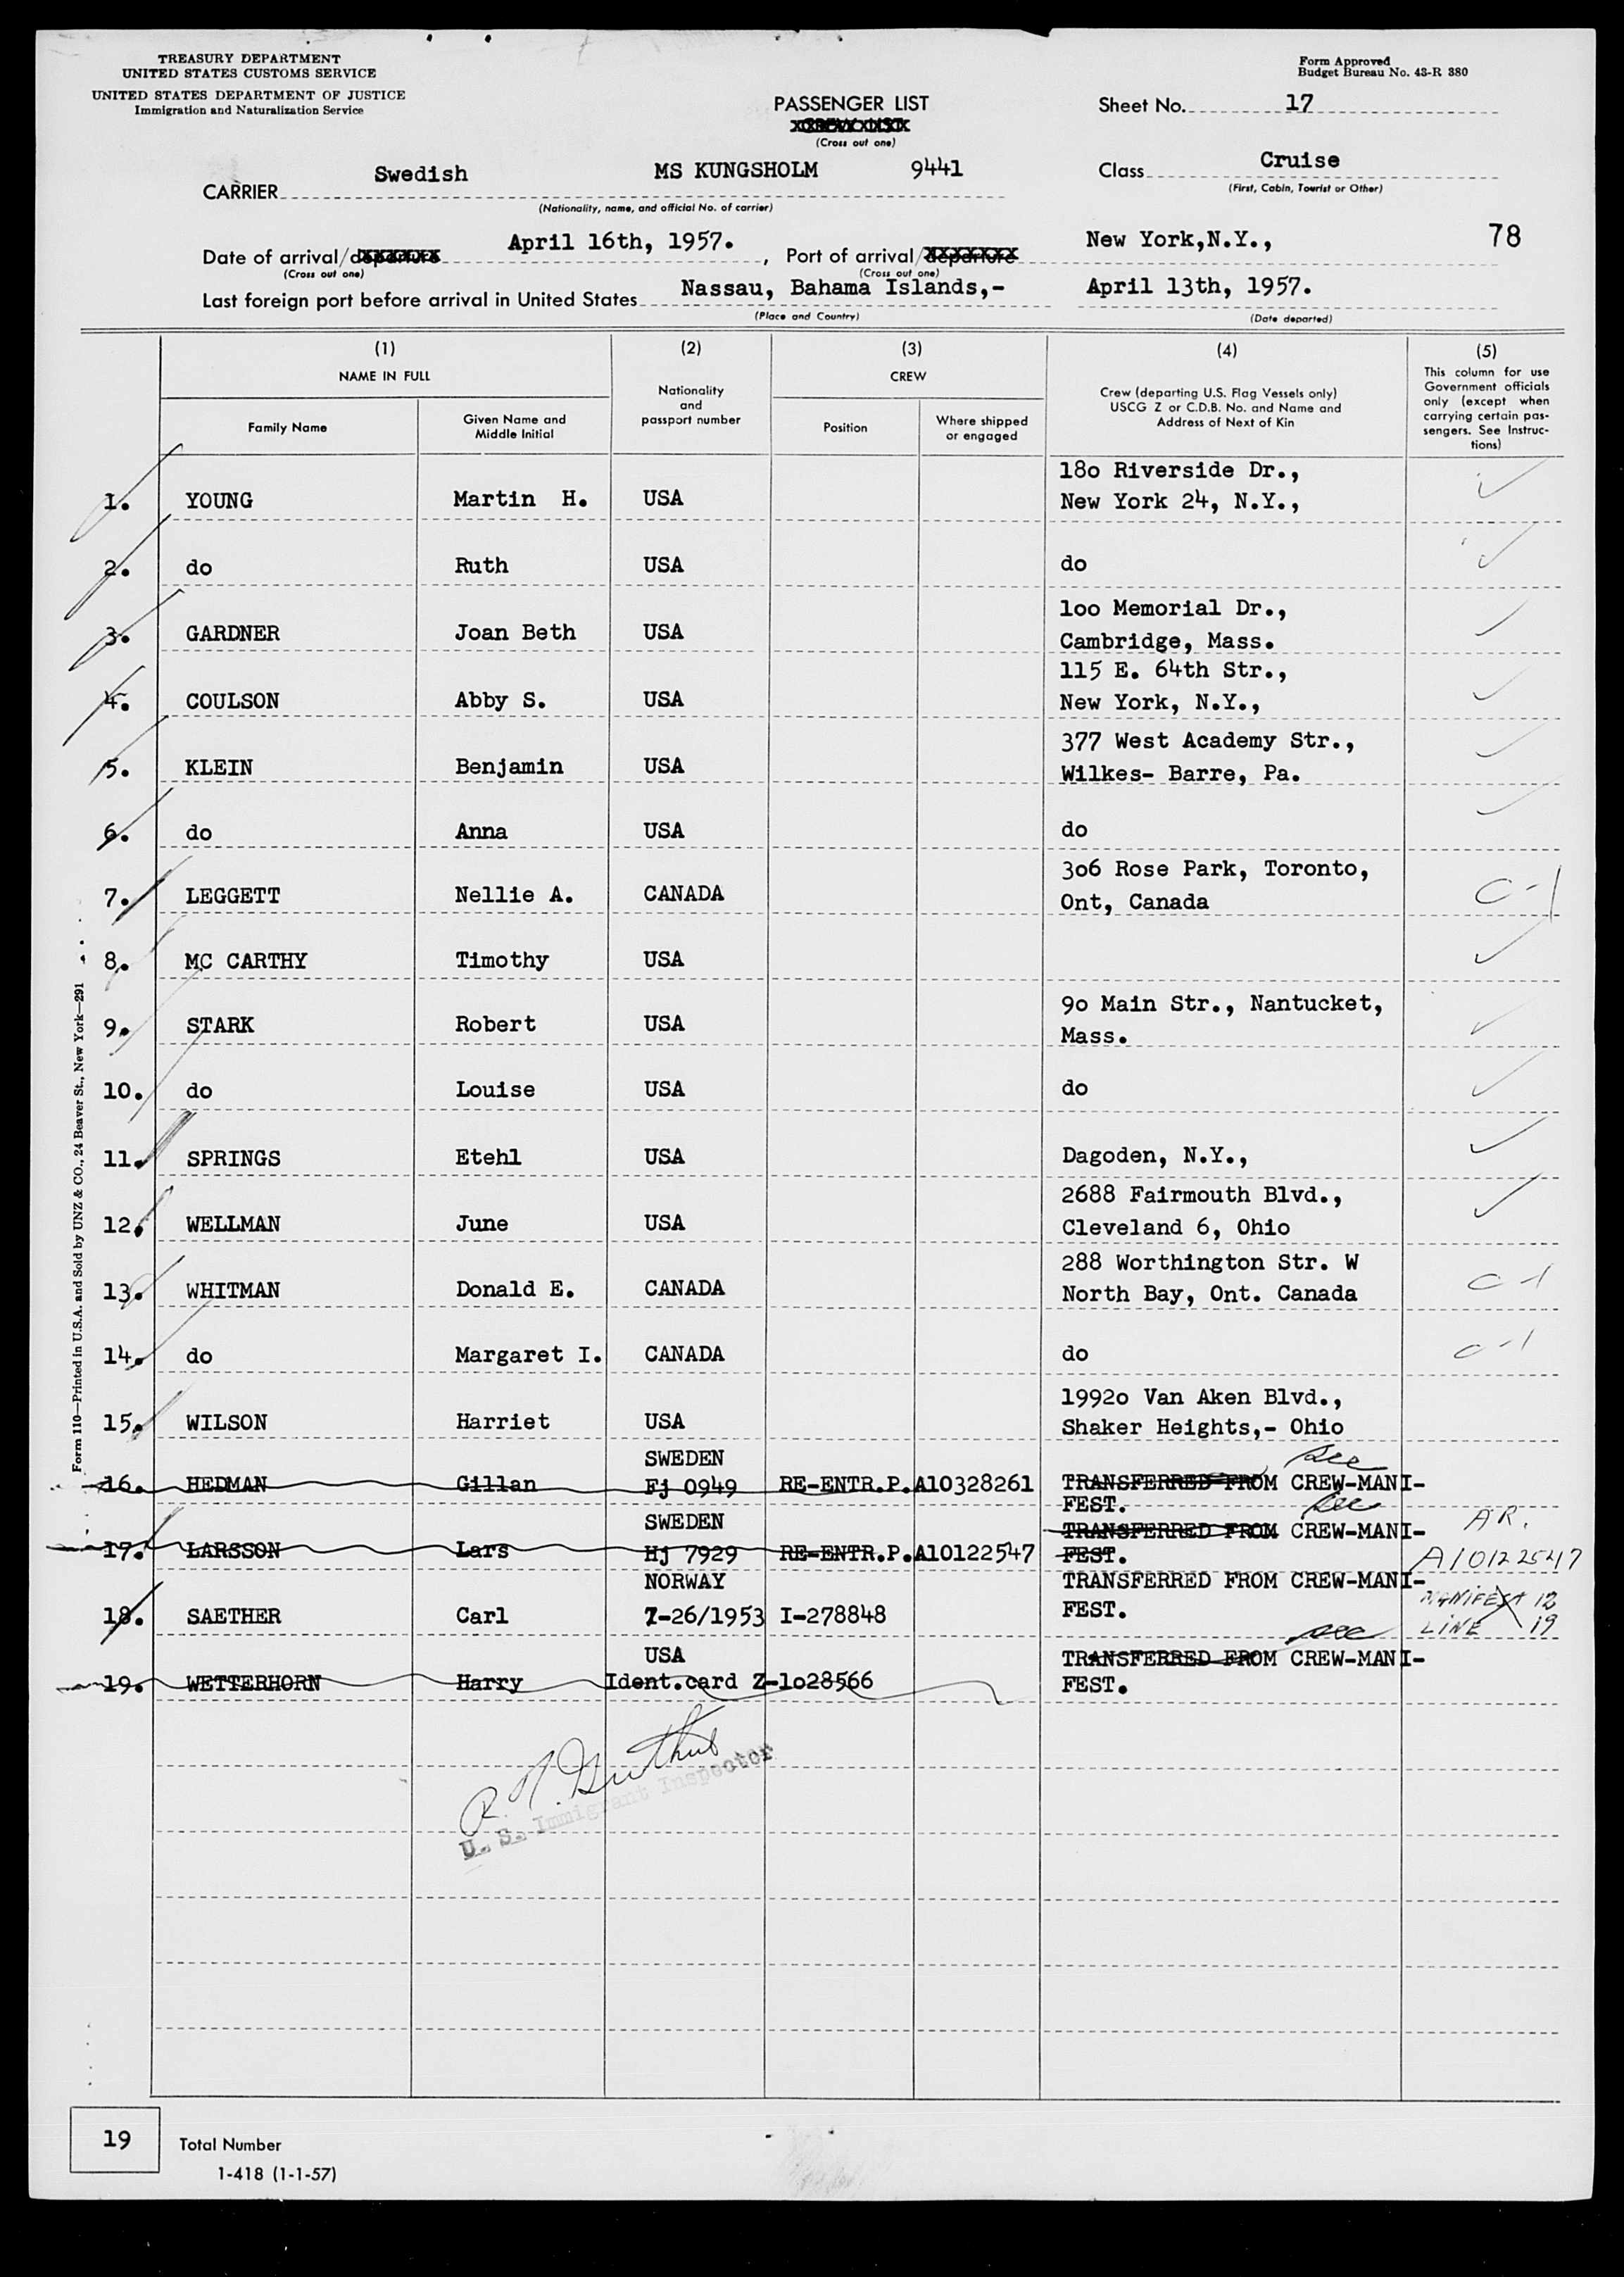 TREASURY DEPARTMENT
UNITED STATES CUSTOMS SERVICE
UNITED STATES DEPARTMENT OF JUSTICE
Immigration and Naturalization Service
Form Approved
Budget Bureau No. 43-R 380
PASSENGER LIST
(Cross out one)
Sheet No. 17
CARRIER Swedish MS KUNGSHOLM 9441
(Nationality, name, and official No. of carrier)
Class Cruise
(First, Cabin, Tourist or Other)
Date of arrival/departure April 16th, 1957. , Port of arrival/departure New York,N.Y., 78
(Cross out one) (Cross out one)
Last foreign port before arrival in United States Nassau, Bahama Islands,- April 13th, 1957.
(Place and Country) (Date departed)
(1) (2) (3) (4) (5)
NAME IN FULL
Family Name
Given Name and
Middle Initial
Nationality
and
passport number
CREW
Position
Where shipped
or engaged
Crew (departing U.S. Flag Vessels only)
USCG Z or C.D.B. No. and Name and
Address of Next of Kin
This column for use
Government officials
only (except when
carrying certain pas-
sengers. See Instruc-
tions)
180 Riverside Dr.,
1. YOUNG Martin H. USA New York 24, N.Y.,
2. do Ruth USA do
100 Memorial Dr.,
3. GARDNER Joan Beth USA Cambridge, Mass.
115 E. 64th Str.,
4. COULSON Abby S. USA New York, N.Y.,
377 West Academy Str.,
5. KLEIN Benjamin USA Wilkes- Barre, Pa.
6. do Anna USA do
306 Rose Park, Toronto,
7. LEGGETT Nellie A. CANADA Ont, Canada C-1
8. MC CARTHY Timothy USA
90 Main Str., Nantucket,
9. STARK Robert USA Mass.
10. do Louise USA do
11. SPRINGS Etehl USA Dagoden, N.Y.,
2688 Fairmouth Blvd.,
12. WELLMAN June USA Cleveland 6, Ohio
288 Worthington Str. W
13. WHITMAN Donald E. CANADA North Bay, Ont. Canada C-1
14. do Margaret I. CANADA do C-1
19920 Van Aken Blvd.,
15. WILSON Harriet USA Shaker Heights,- Ohio
SWEDEN see
16. HEDMAN Gillan Fj 0949 RE-ENTR.P.A10328261 TRANSFERRED FROM CREW-MANI-
FEST. see
SWEDEN TRANSFERRED FROM CREW-MANI- A.R.
17. LARSSON Lars Hj 7929 RE-ENTR.P.A10122547 FEST. A10122547
NORWAY TRANSFERRED FROM CREW-MANI-
MANIFEST 12
18. SAETHER Carl 7-26/1953 I-278848 FEST.
see LINE 19
USA TRANSFERRED FROM CREW-MANI-
19. WETTERHORN Harry Ident.card Z-1028566 FEST.
U. S. Immigrant Inspector
Form 110—Printed in U.S.A. and Sold by UNZ & CO., 24 Beaver St., New York—291
19 Total Number
1-418 (1-1-57)